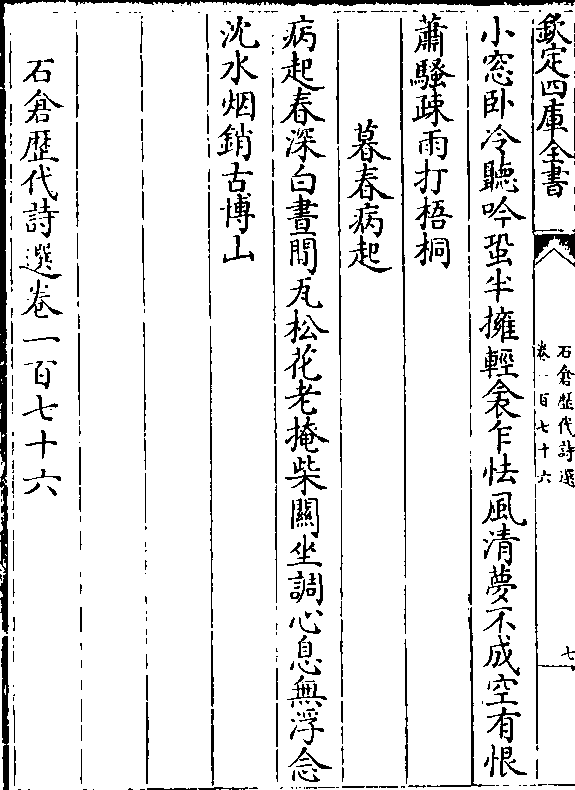 欽定四庫全書
石倉歴代詩選
卷一百七十六
七
小窓卧冷聽吟蛩半擁輕衾乍怯風清夢不成空有恨
蕭騷疎雨打梧桐
暮春病起
病起春深白晝閒瓦松花老掩柴關坐調心息無浮念
沈水烟銷古博山
石倉歴代詩選卷一百七十六